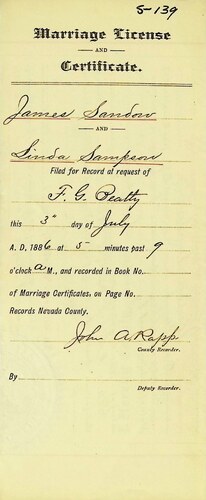 5-139
Marriage License
AND
Certificate.
James Sandow
AND
Linda Sampson
Filed for Record at request of
F. G. Beatty
this 3" day of July
A. D, 1886 at 5 minutes past 9
o'clock A M., and recorded in Book No.
of Marriage Certificates, on Page No.
Records Nevada County.
John A. Rapp
County Recorder.
By
Deputy Recorder.